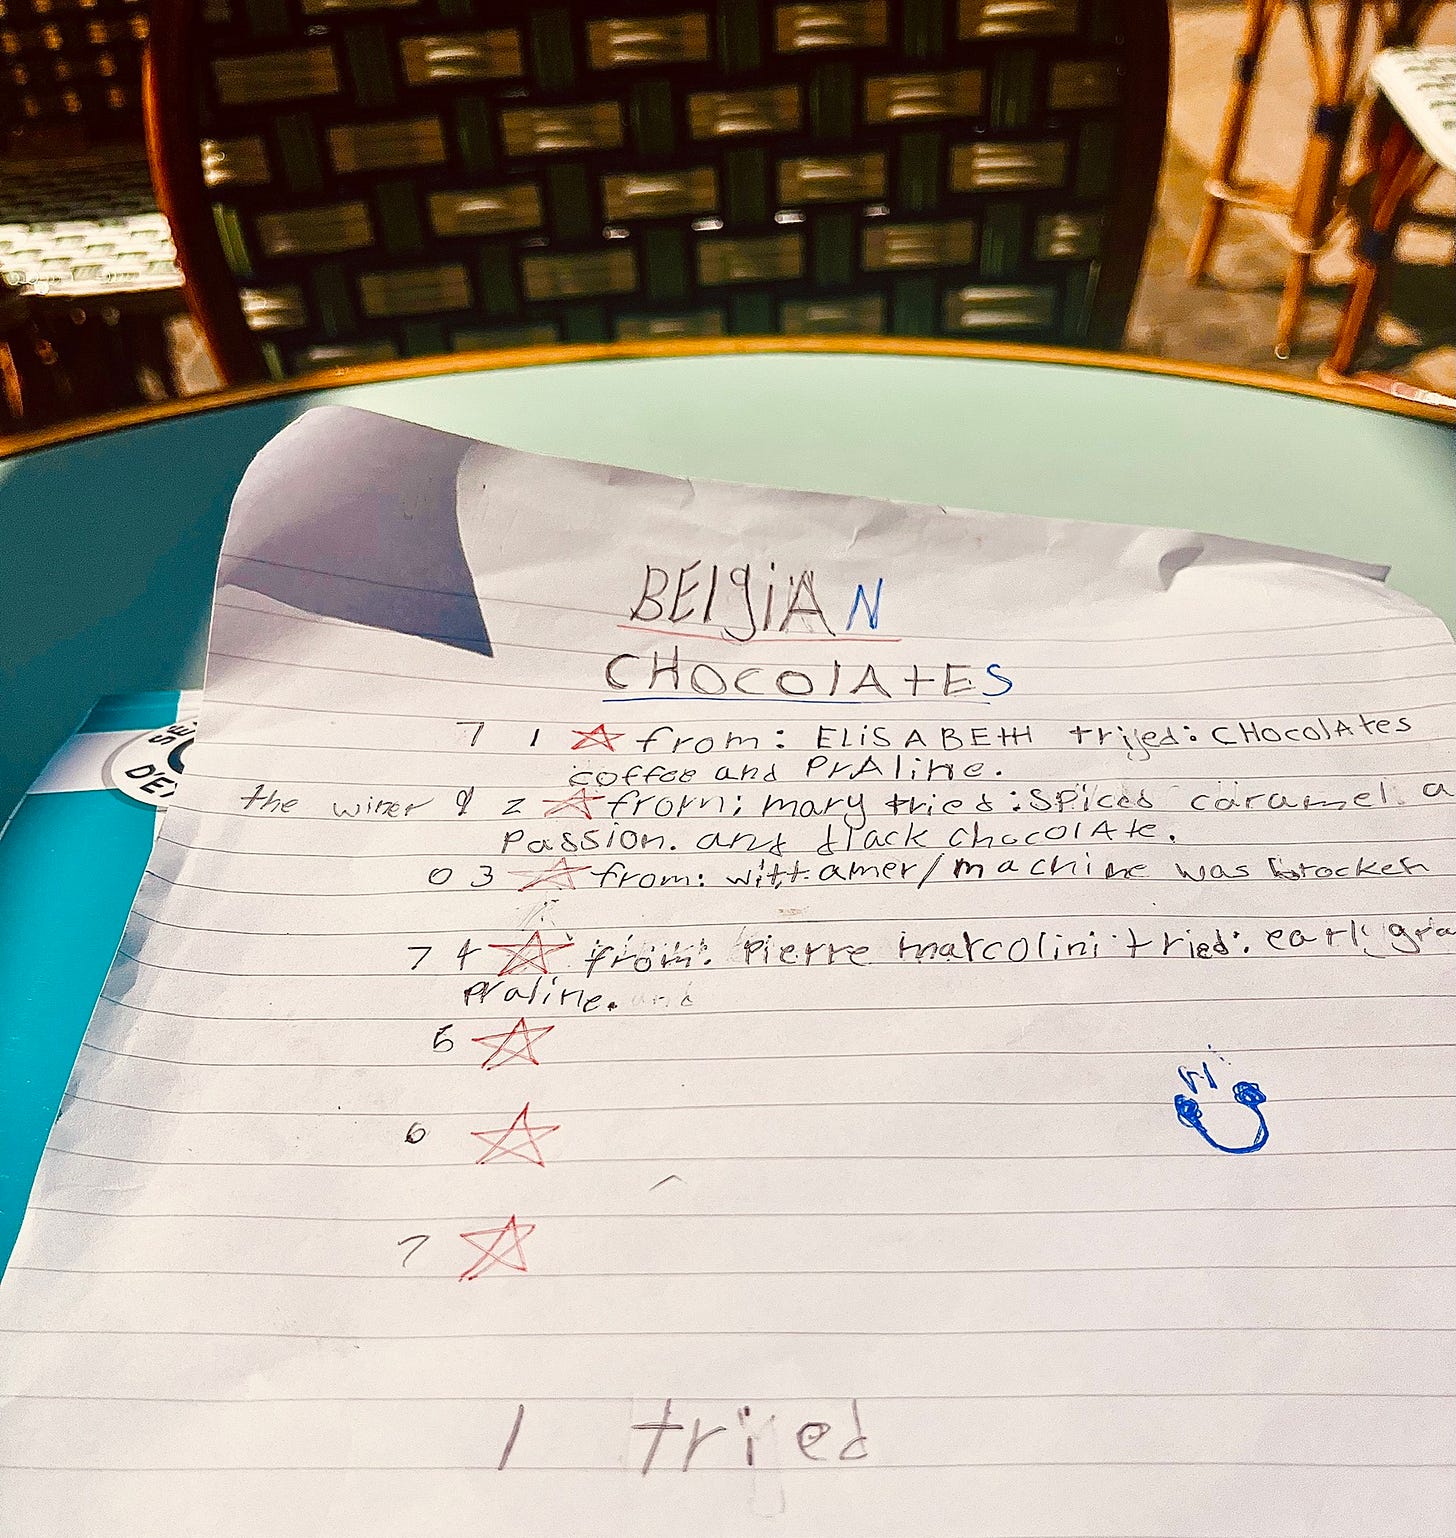 BElgiAN
CHOCOlATES
7 1 from: ELiSABEtH trijed: CHocolAtes
coffee and PrAline.
the winer 9 2 from: mary tried: Spiced caramel a
Passion. and black chocolAte.
0 3 from: wittamer/machine was brocken
7 4 from: Pierre marcolini tried: earl gra
Praline. and
5
6
7
Hi
1 tried
D'E